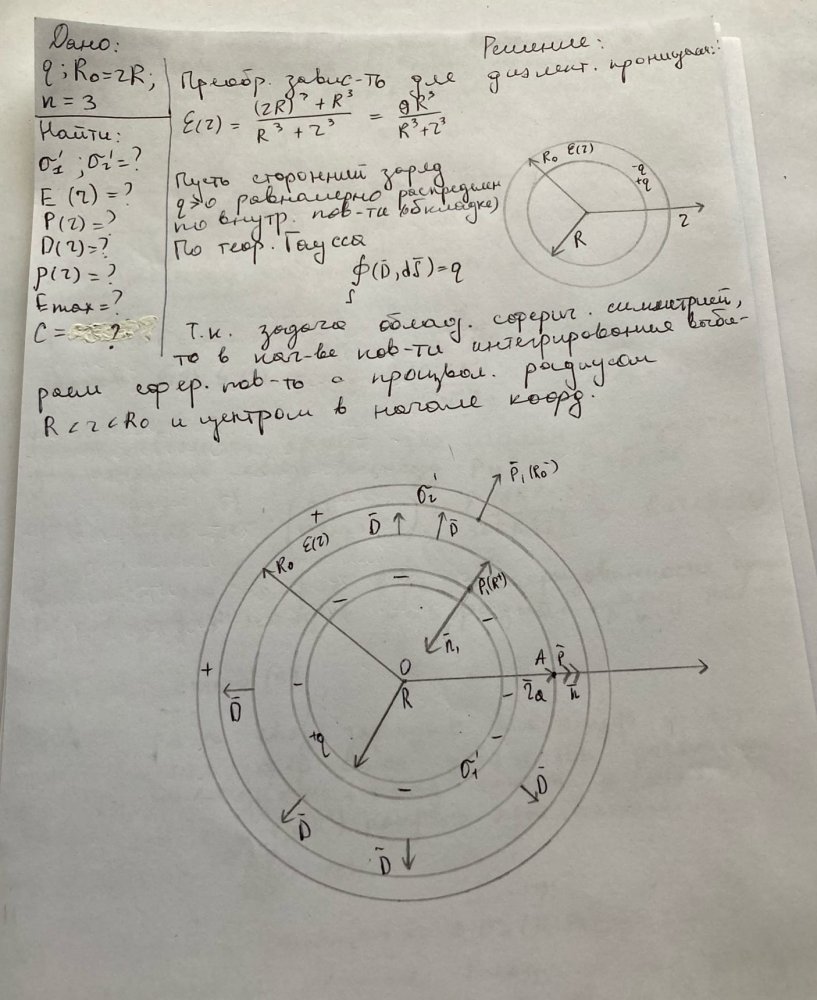 Дано:
q; R₀=2R;
n = 3
Найти:
σ₁'; σ₂'=?
E(r)=?
P(r)=?
D(r)=?
ρ(r)=?
Emax=?
C= ?
Решение:
Преобр. завис-ть для диэлект. проницаем.:
ε(r) = ((2R)³ + R³)/(R³ + r³) = 9R³/(R³+r³)
Пусть сторонний заряд
q>0 равномерно распределен
по внутр. пов-ти (обкладке)
По теор. Гаусса
∮(D̄, dS̄)=q
S
R₀ ε(r)
-q
+q
R
r
Т.к. задача облад. сферич. симметрией,
то в кач-ве пов-ти интегрирования выби-
раем сфер. пов-ть с произвол. радиусом
R < r < R₀ и центром в начале коорд.
P̄₁(R₀⁻)
σ₂'
+
D̄
D̄
R₀ ε(r)
P̄₁(R⁺)
n̄₁
O
R
A
P̄
r̄a
n̄
+
D̄
+q
σ₁'
D̄
D̄
D̄